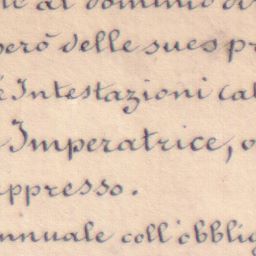 al dominio di
però delle sues pr
è Intestazioni cat
Imperatrice, o
appresso.
annuale coll'obblig